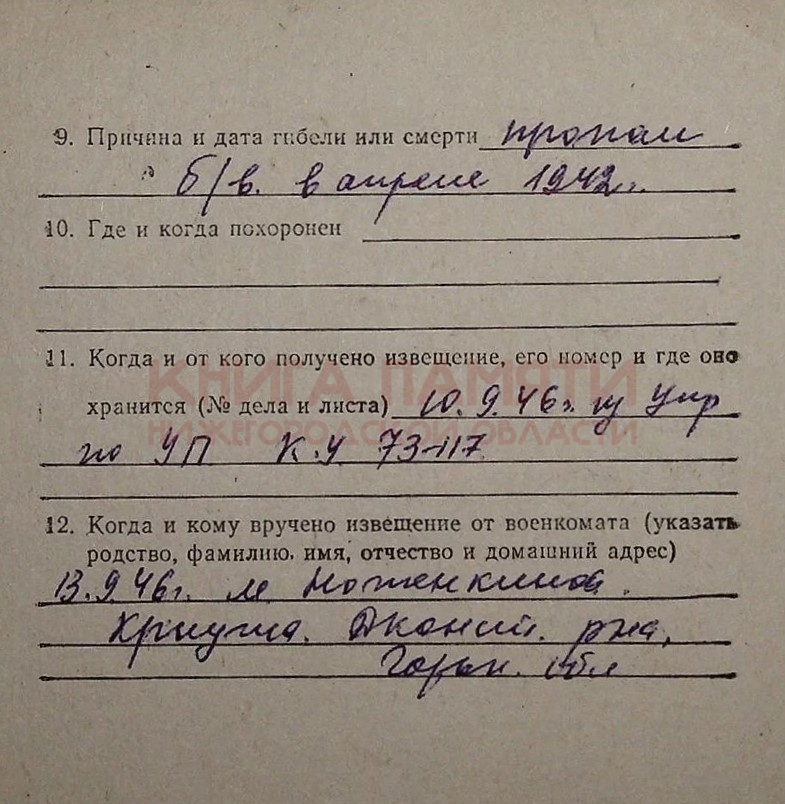 9. Причина и дата гибели или смерти пропал
б/в. в апреле 1942г.
10. Где и когда похоронен
11. Когда и от кого получено извещение, его номер и где оно
КНИГА ПАМЯТИ
хранится (№ дела и листа) 10.9.46г. из Упр
НИЖЕГОРОДСКОЙ ОБЛАСТИ
по УП К.У 73-117
12. Когда и кому вручено извещение от военкомата (указать
родство, фамилию, имя, отчество и домашний адрес)
13.9.46г. м Ноженкиной
Криуша. р-на,
Горьк. обл